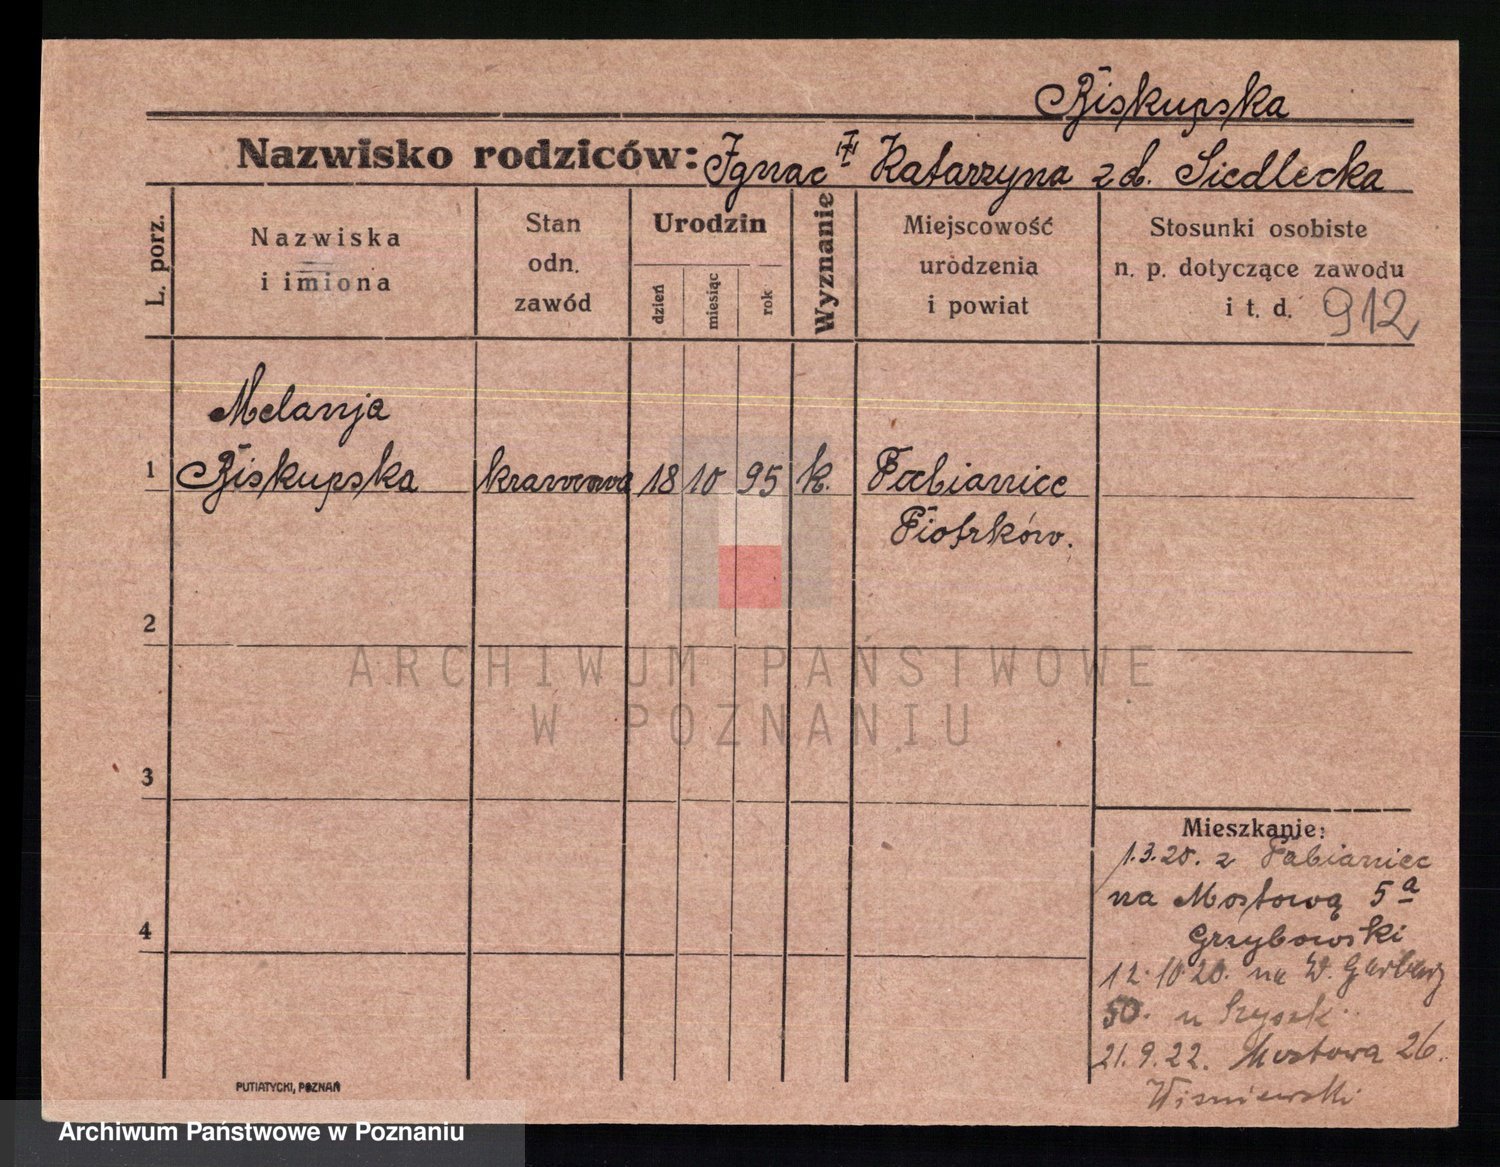 Biskupska
Nazwisko rodziców: Ignac Katarzyna z d. Siedlecka
L. porz.
Nazwiska
i imiona
Stan
odn.
zawód
Urodzin
dzień
miesiąc
rok
Wyznanie
Miejscowość
urodzenia
i powiat
Stosunki osobiste
n. p. dotyczące zawodu
i t. d. 912
Melanja
1 Biskupska krawcowa 18 10 95 k. Pabianice
Piotrków.
2
3
4
ARCHIWUM PAŃSTWOWE
W POZNANIU
Mieszkanie:
1.3.20. z Pabianice
na Mostową 5a
Grzybowski
12.10.20. na W. Garbary
50. u Szyszk
21.9.22. Mostowa 26.
Wiśniewski
PUTIATYCKI, POZNAŃ
Archiwum Państwowe w Poznaniu